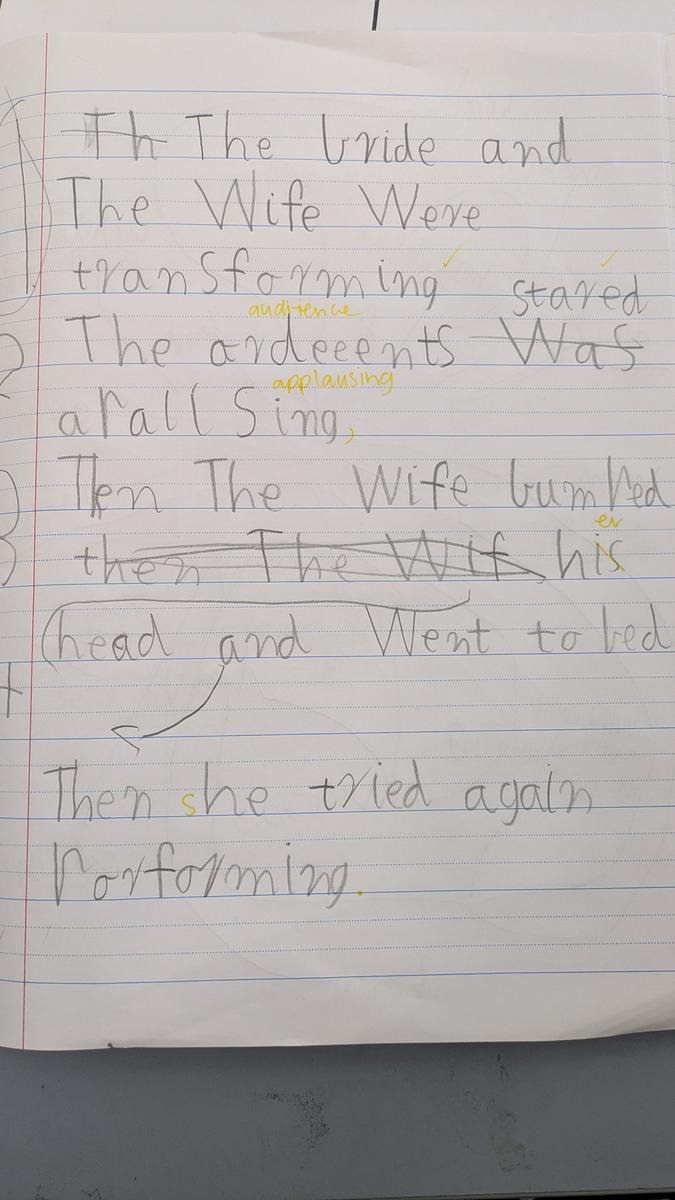 1 Th The bride and
The Wife Were
transforming stared
audience
The ardeeents Was
applausing
apallSing,
Then The Wife bumped
er
then The Wif his
head and Went to bed
Then she tried again
Porforming.